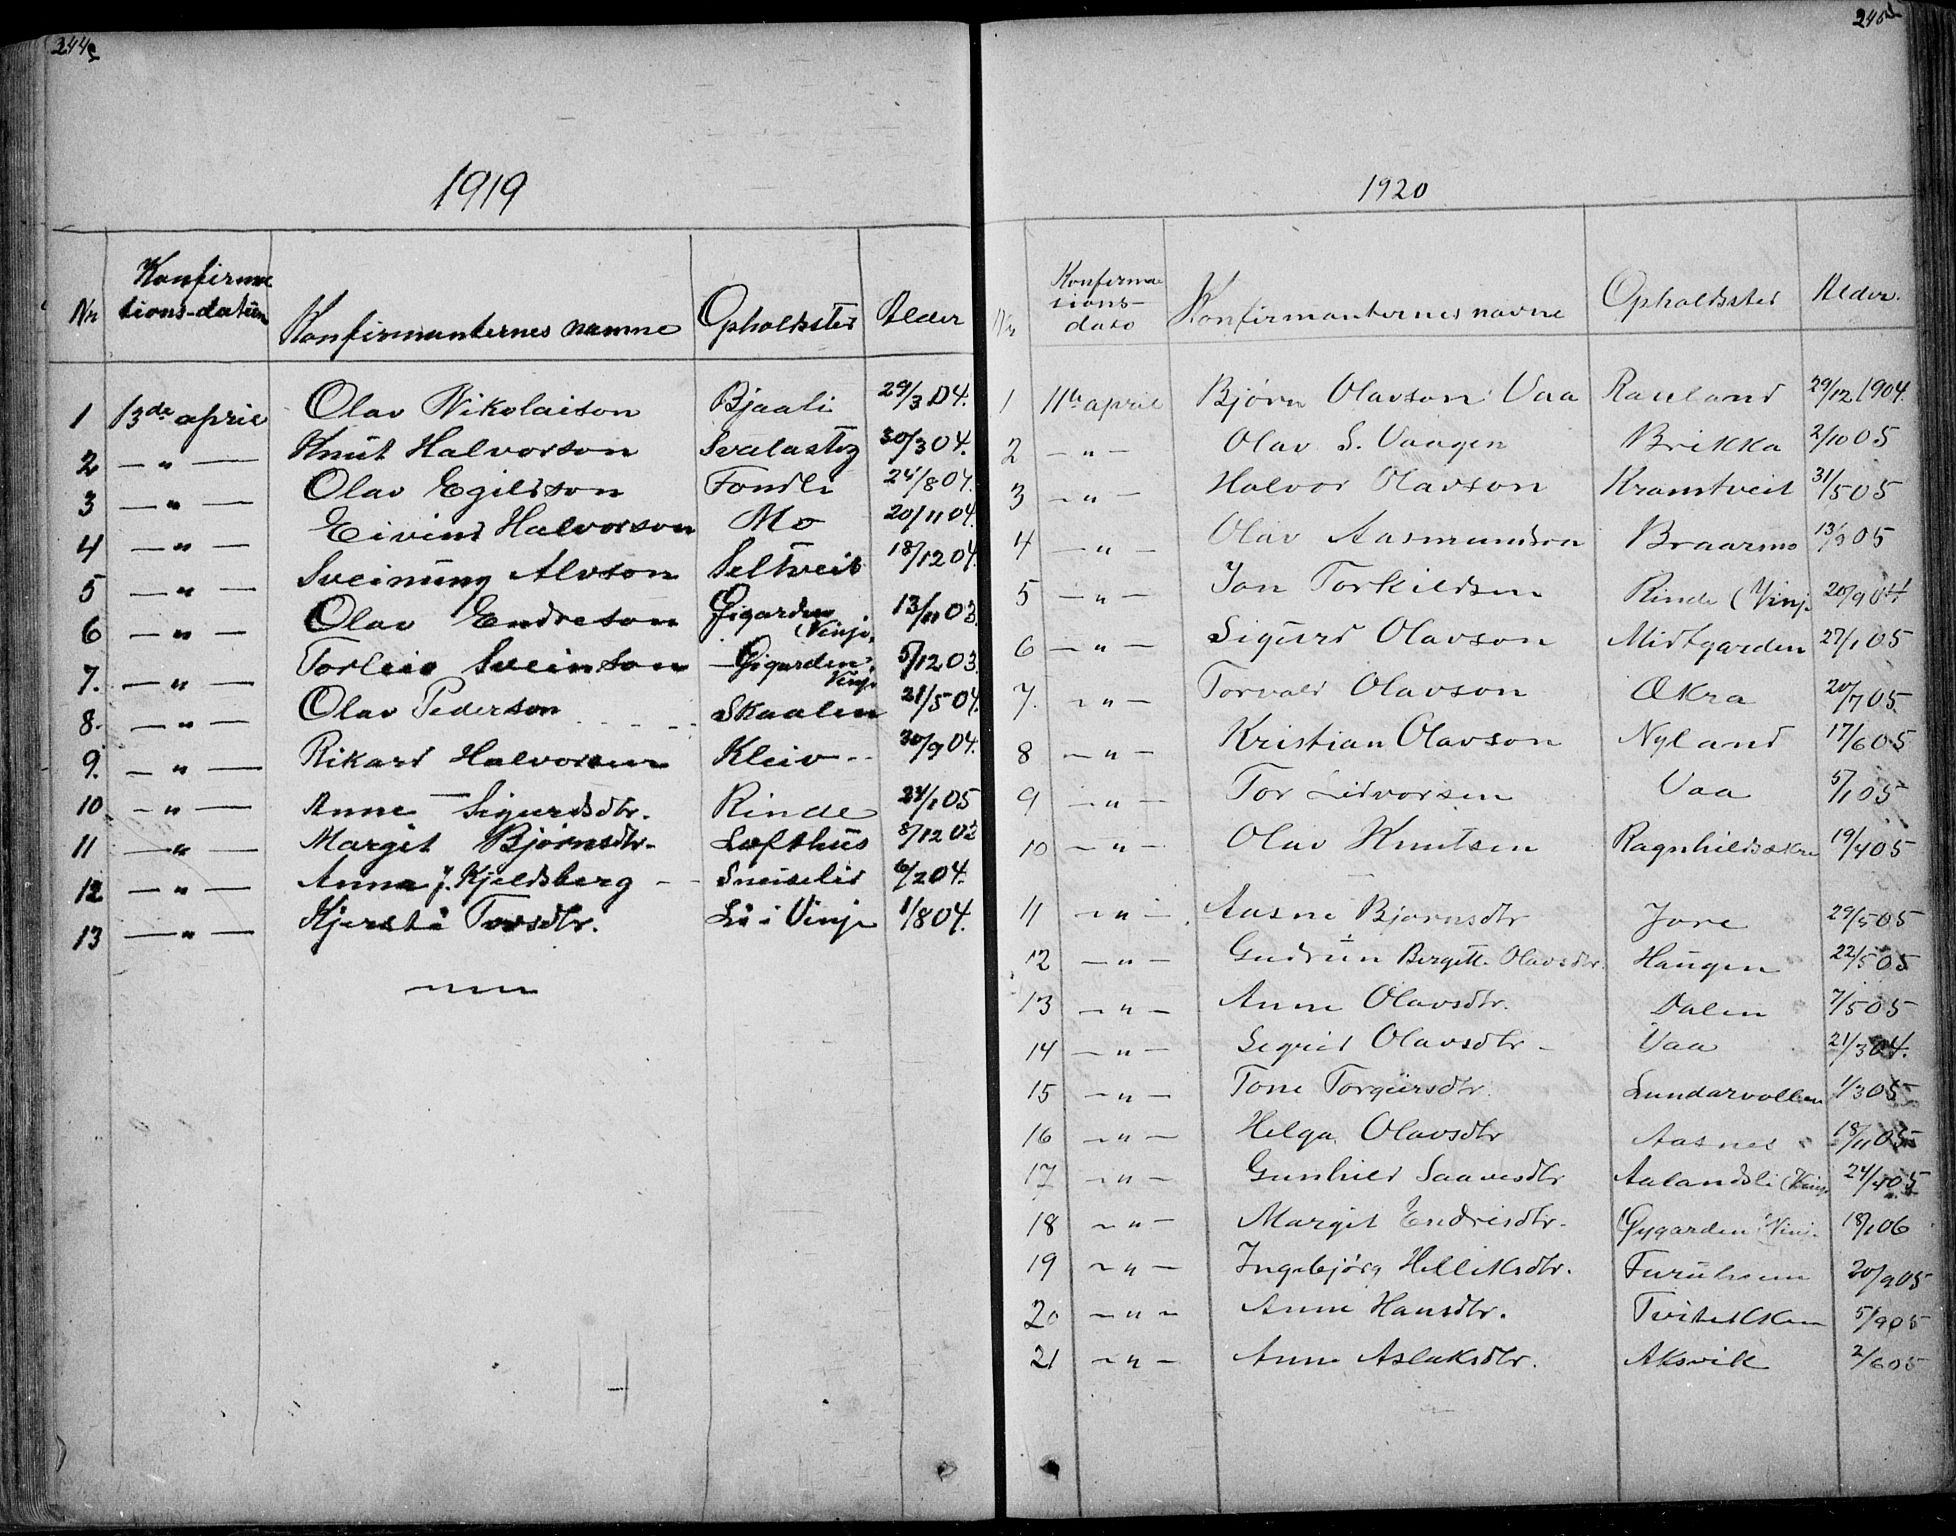 244
1919
Nr Konfirma
tions-datum Konfirmanternes namne Opholdssted Alder
1 13de april Olav Nikolaison Bjaali 29/3 04.
2 — " — Knut Halvorson Svalastog 30/3 04.
3 — " — Olav Egilson Fondli 24/8 04.
4 — " — Eivind Halvorson Mo 20/11 04.
5 — " — Sveinung Alvson Seltveit 18/12 04.
6 — " — Olav Endreson Øigarden (Vinje. 13/11 03.
7. — " — Torleiv Sveinson Øigarden, Vinje 5/12 03.
8. — " — Olav Pederson Skaalen 21/5 04.
9. — " — Rikard Halvorsen Kleiv 30/9 04.
10 — " — Anne Sigurdsdtr. Rinde 24/1 05
11 — " — Margit Bjørnsdtr. Lofthus 8/12 03
12 — " — Anna J. Kjeldsberg Sneiselid 6/2 04.
13 — " — Kjersti Torsdtr. Li i Vinje 1/8 04.
245
1920
Nr Konfirma
tions-
dato Konfirmanternes navne Opholdssted Alder.
1 11te april Bjørn Olavson Vaa Rauland 29/12 1904.
2 — " — Olav S. Vaagen Brikka 2/10 05
3 — " — Halvor Olavson Kramtveit 31/5 05
4 — " — Olav Aasmundson Braarmo 13/3 05
5 — " — Jon Torkildsen Rinde (Vinje 20/9 04
6 — " — Sigurd Olavson Midtgarden 27/1 05
7. — " — Torvald Olavson Økra 20/7 05.
8 — " — Kristian Olavson Nyland 17/6 05
9 — " — Tor Lidvorsen Vaa 5/1 05
10 — " — Olav Knutsen Ragnhildsøkra 19/4 05
11 — " — Aasne Bjørnsdtr Jore 29/5 05
12 — " — Gudrun Bergitte Olavsdtr. Haugen 22/5 05
13 — " — Anne Olavsdtr. Dalen 7/5 05
14 — " — Sigrid Olavsdtr Vaa 21/3 04.
15 — " — Tone Torgiersdtr. Lundarvollen 1/3 05
16 — " — Helga Olavsdtr Aasnes 18/11 05
17 — " — Gunhild Saavesdtr Aalandsli (Vinje 24/4 05
18 — " — Margit Endresdtr. Øygarden (Vinje 18/1 06
19 — " — Ingebjørg Helliksdtr. Furuheim 20/9 05
20 — " — Anne Hansdtr. 5/9 05
21 — " — Anne Aslaksdtr. Aksvik 2/6 05